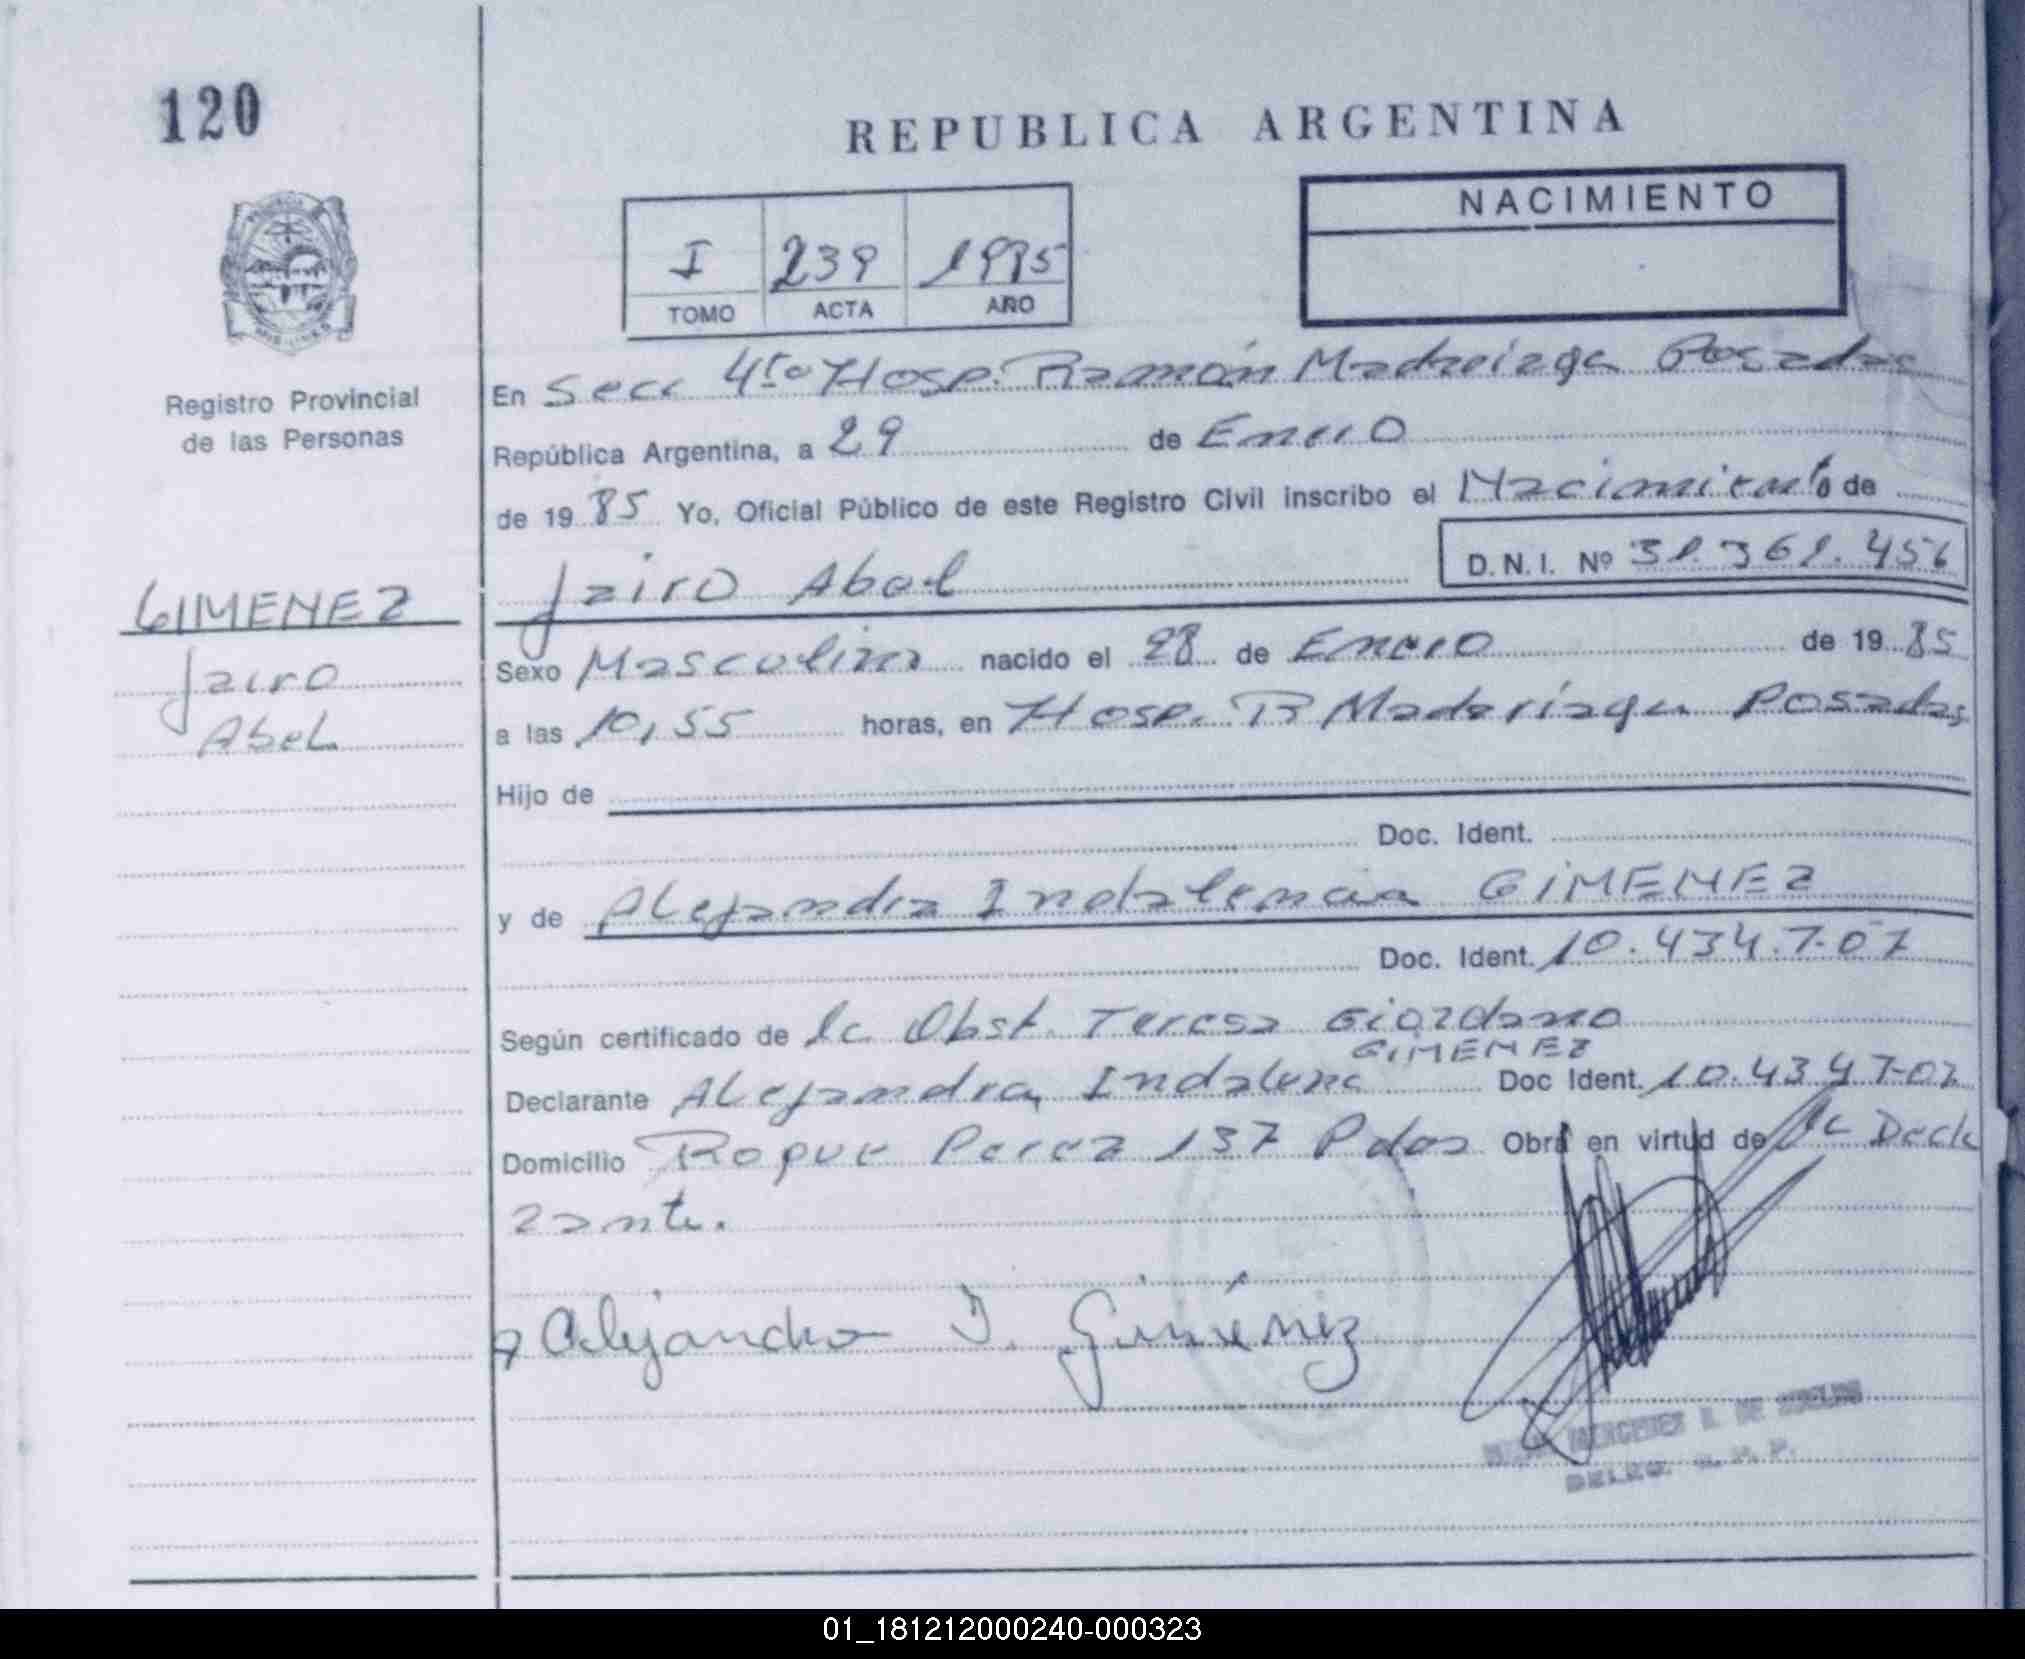 120
REPUBLICA ARGENTINA
NACIMIENTO
I 239 1995
TOMO ACTA AÑO
Registro Provincial
de las Personas
En Secc 4to Hosp. Ramón Madreiaga Posadas
República Argentina, a 29 de Enero
de 19 85 Yo, Oficial Público de este Registro Civil inscribo el Nacimiento de
Jairo Abel
D.N.I. Nº 31.361.456
GIMENEZ
Jairo
Abel
Sexo Masculino nacido el 28 de Enero de 19 85
a las 10,55 horas, en Hosp. R Madariaga Posadas
Hijo de
Doc. Ident.
y de Alejandra Indalencia GIMENEZ
Doc. Ident. 10.434.707
Según certificado de la Obst. Teresa Giordano
GIMENEZ
Declarante Alejandra Indalena Doc Ident. 10.434707
Domicilio Roque Perez 137 Pdas Obra en virtud de la Decla
rante.
Alejandra I. Giménez
MERCEDES
DELEG. R. P.
01_181212000240-000323